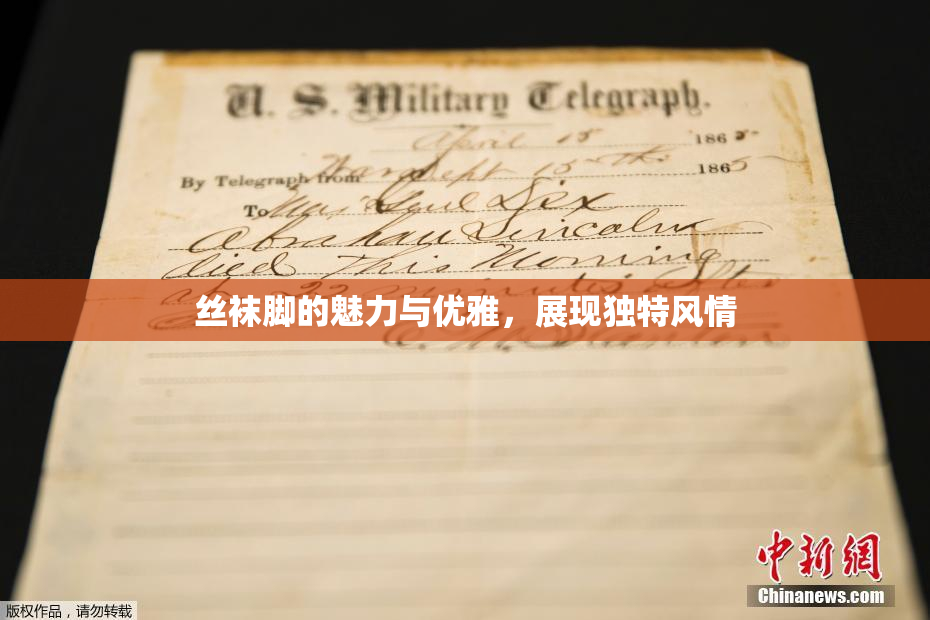 U. S. Military Telegraph.
April 15 1865
By Telegraph from War Dept 15th 1865
To Maj Genl Dix
Abraham Lincoln
died This Morning
at 22 minutes after
丝袜脚的魅力与优雅，展现独特风情
E. M. Stanton
中新网
Chinanews.com
版权作品，请勿转载